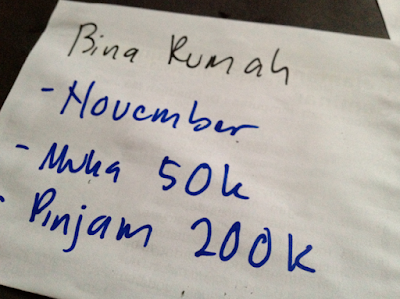 Bina Rumah
- November
- Muka 50k
- Pinjam 200k